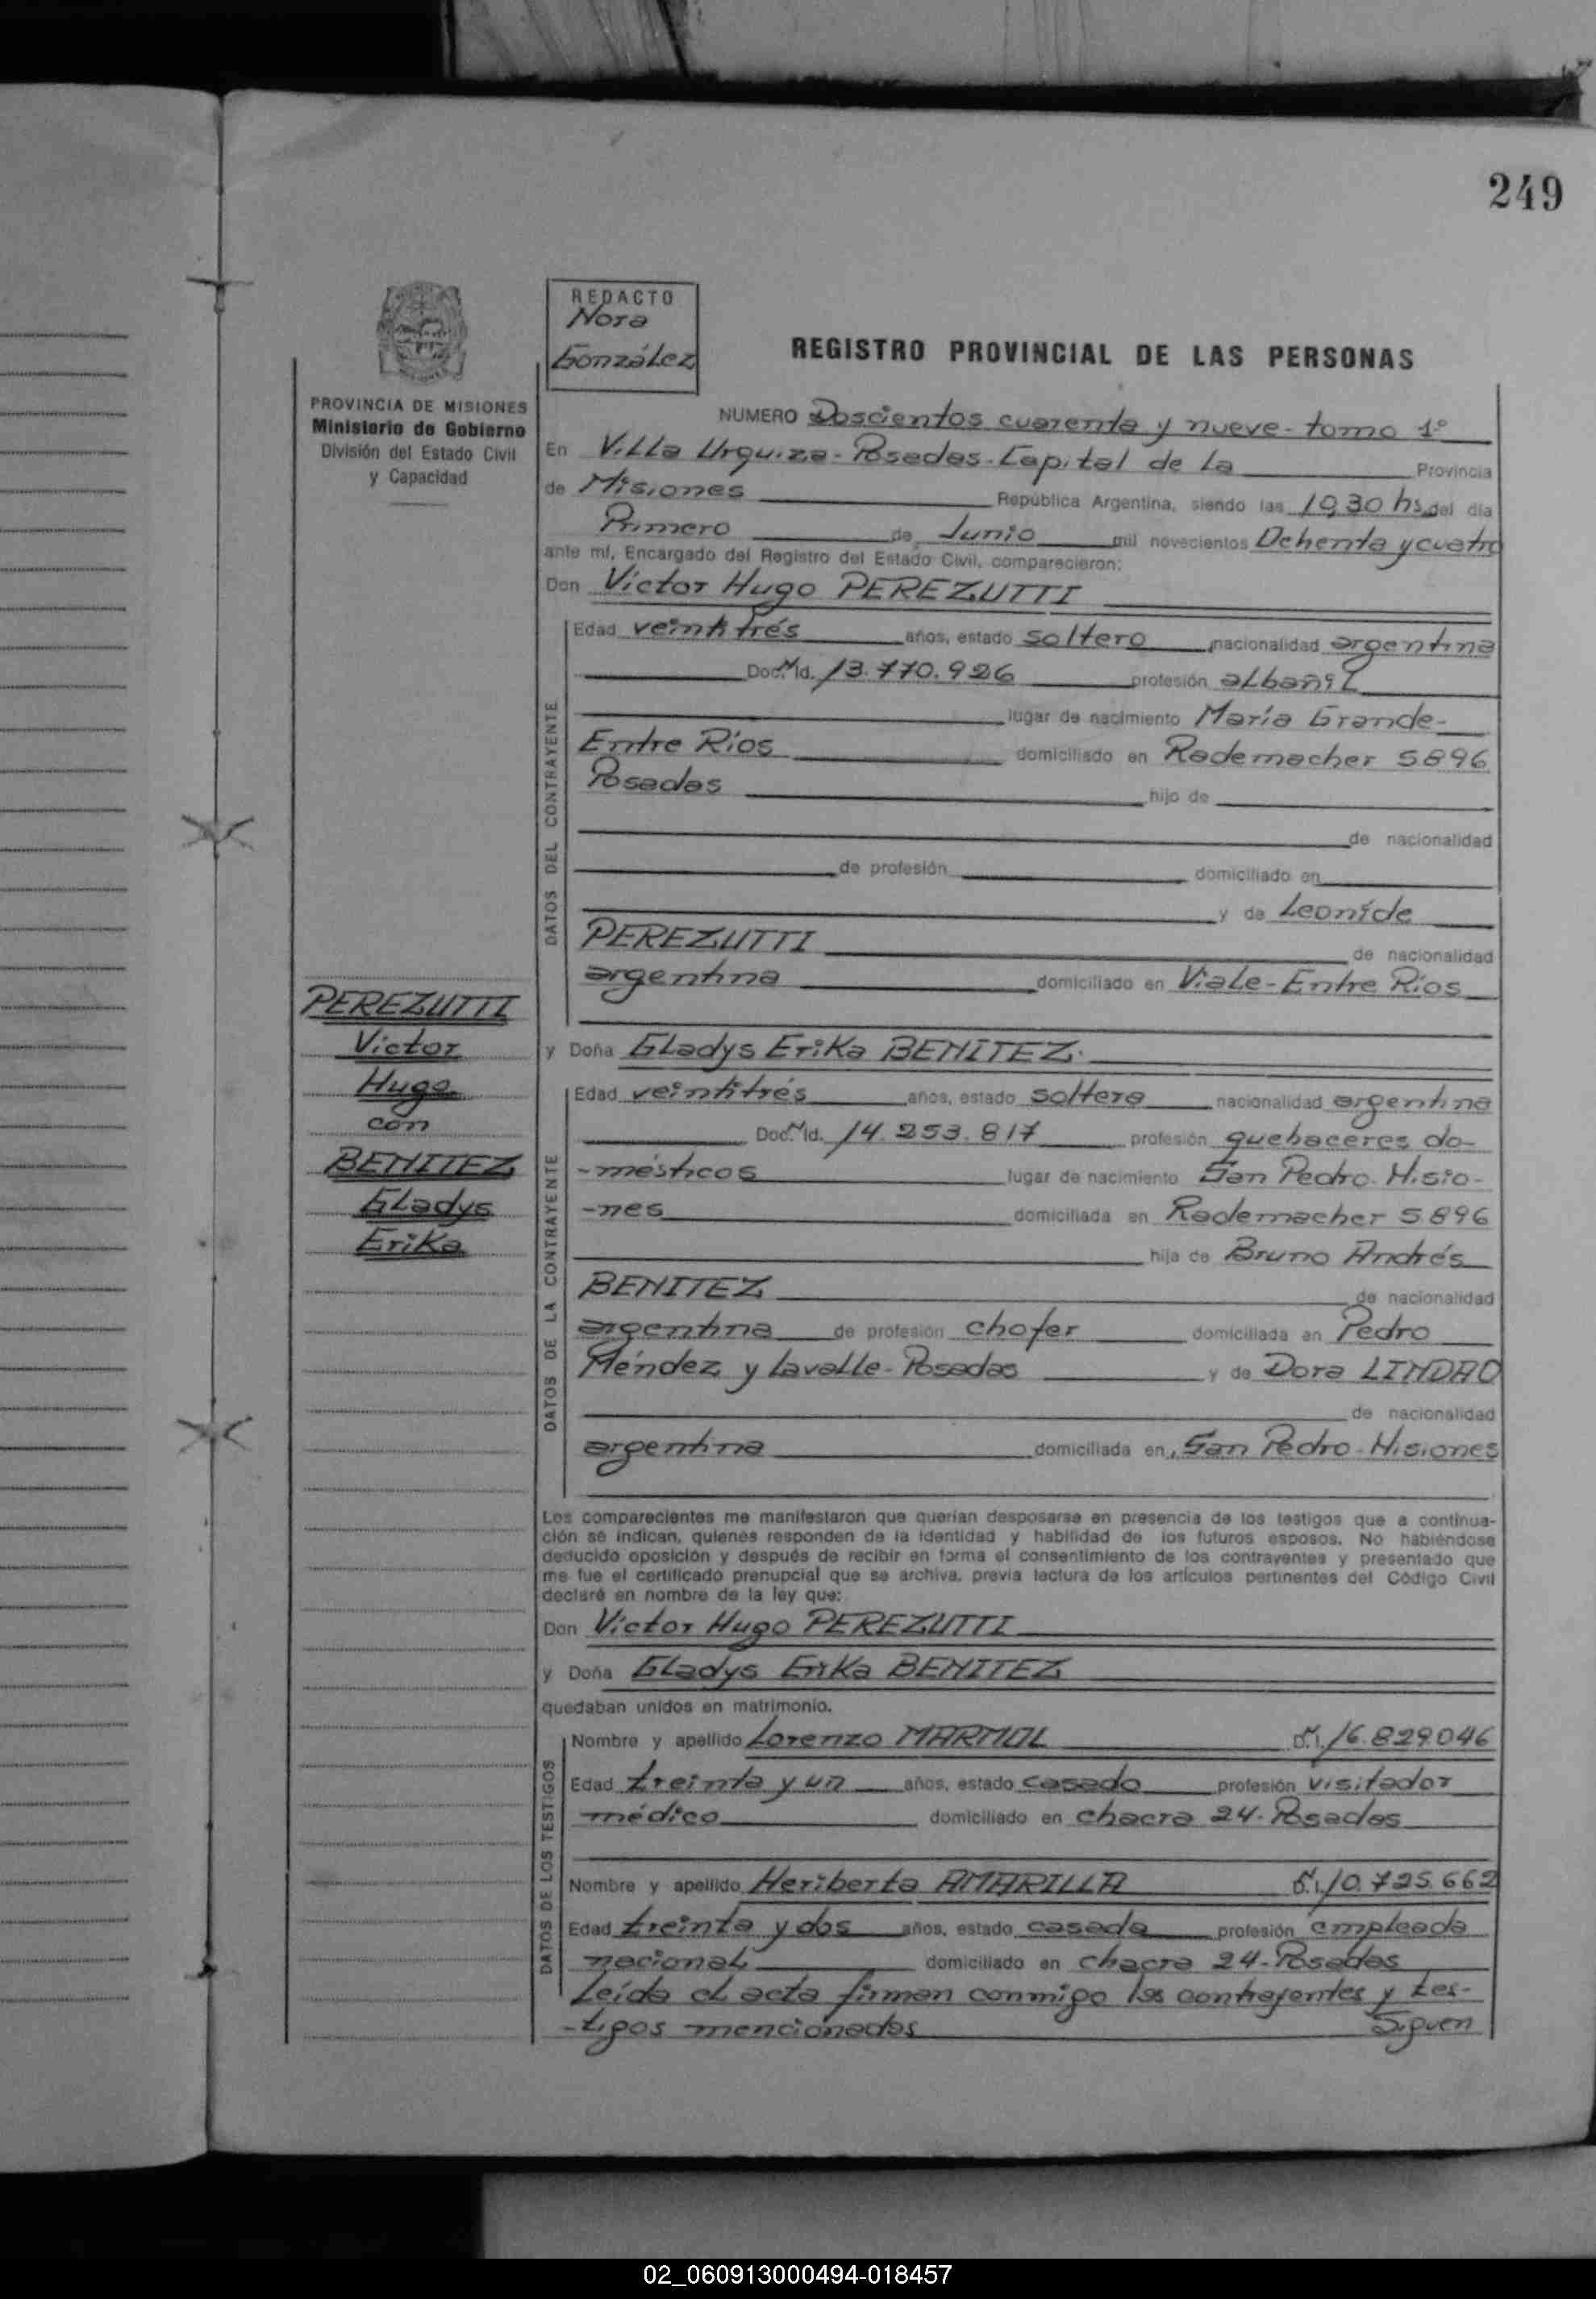 249
REDACTO
Nora
González
REGISTRO PROVINCIAL DE LAS PERSONAS
PROVINCIA DE MISIONES
Ministerio de Gobierno
División del Estado Civil
y Capacidad
NUMERO Doscientos cuarenta y nueve - tomo 1º
En Villa Urquiza - Posadas - Capital de la Provincia
de Misiones República Argentina, siendo las 10,30 hs del día
Primero de Junio mil novecientos Ochenta y cuatro
ante mí, Encargado del Registro del Estado Civil, comparecieron:
Don Víctor Hugo PEREZUTTI
DATOS DEL CONTRAYENTE
Edad veintitrés años, estado soltero nacionalidad argentina
Doc. N. Id. 13.770.926 profesión albañil
lugar de nacimiento María Grande -
Entre Ríos domiciliado en Rademacher 5896
Posadas hijo de
de nacionalidad
de profesión domiciliado en
y de Leonide
PEREZUTTI de nacionalidad
argentina domiciliado en Viale - Entre Ríos
PEREZUTTI
Victor
Hugo
con
BENITEZ
Gladys
Erika
y Doña Gladys Erika BENITEZ.
DATOS DE LA CONTRAYENTE
Edad veintitrés años, estado soltera nacionalidad argentina
Doc. N. Id. 14.253.817 profesión quehaceres do-
-mésticos lugar de nacimiento San Pedro - Misio-
-nes domiciliada en Rademacher 5896
hija de Bruno Andrés
BENITEZ de nacionalidad
argentina de profesión chofer domiciliada en Pedro
Méndez y Lavalle - Posadas y de Dora LINDAO
de nacionalidad
argentina domiciliada en San Pedro - Misiones
Los comparecientes me manifestaron que querían desposarse en presencia de los testigos que a continua-
ción se indican, quienes responden de la identidad y habilidad de los futuros esposos. No habiéndose
deducido oposición y después de recibir en forma el consentimiento de los contrayentes y presentado que
me fue el certificado prenupcial que se archiva, previa lectura de los artículos pertinentes del Código Civil
declaré en nombre de la ley que:
Don Víctor Hugo PEREZUTTI
y Doña Gladys Erika BENITEZ
quedaban unidos en matrimonio.
DATOS DE LOS TESTIGOS
Nombre y apellido Lorenzo MARMOL 16.829.046
Edad treinta y un años, estado casado profesión visitador
médico domiciliado en chacra 24 - Posadas
Nombre y apellido Heriberta AMARILLA 10.725.662
Edad treinta y dos años, estado casada profesión empleada
nacional domiciliado en chacra 24 - Posadas
Leída el acta firman conmigo los contrayentes y tes-
-tigos mencionados Siguen
02_060913000494-018457